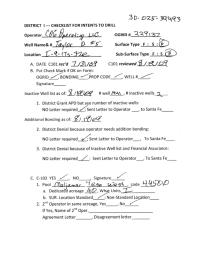 30-025-39493
DISTRICT I — CHECKLIST FOR INTENTS TO DRILL
Operator COG Operating LLC OGRID # 229137
Well Name& # Taylor D #5 Surface Type F S P
Location I-9-17s-32e Sub-Surface Type F S P
A. DATE C101 rec'd C101 reviewed
B. Put Check Mark if OK on Form:
OGRID ✓ BONDING ✓ PROP CODE ✓ WELL # ✓
Signature
Inactive Well list as of # wells , # Inactive wells 2
1. District Grant APD but see number of inactive wells
NO Letter required ✓ Sent Letter to Operator , to Santa Fe
Additional Bonding as of
2. District Denial because operator needs addition bonding:
NO Letter required ✓ Sent Letter to Operator , To Santa Fe
3. District Denial because of Inactive Well list and Financial Assurance:
NO Letter required Sent Letter to Operator , To Santa Fe
C. C-102 YES ✓ NO Signature ✓
1. Pool Maljamar Yeso West, code 44500
a. Dedicated acreage 40, What Units I
b. SUR. Location Standard ✓ Non-Standard Location
2. 2nd Operator in same acreage, Yes No ✓
If Yes, Name of 2nd Oper
Agreement Letter , Disagreement letter